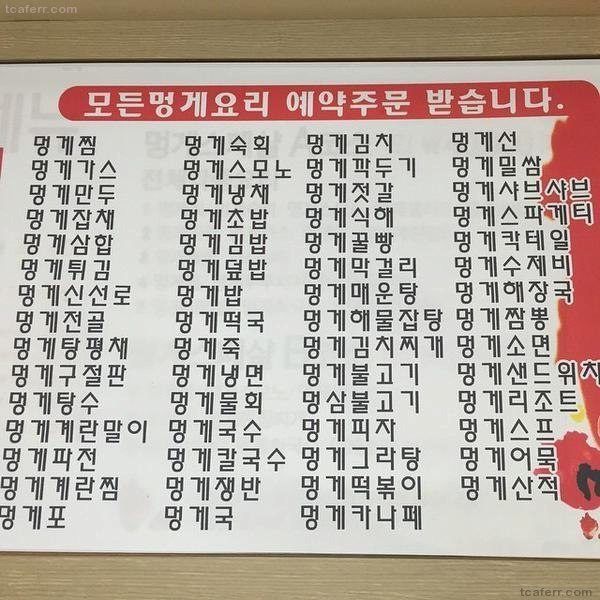 tcaferr.com
모든멍게요리 예약주문 받습니다.
멍게찜
멍게가스
멍게만두
멍게잡채
멍게삼합
멍게튀김
멍게신선로
멍게전골
멍게탕평채
멍게구절판
멍게탕수
멍게계란말이
멍게파전
멍게계란찜
멍게포
멍게숙회
멍게스모노
멍게냉채
멍게초밥
멍게김밥
멍게덮밥
멍게밥
멍게떡국
멍게죽
멍게냉면
멍게물회
멍게국수
멍게칼국수
멍게쟁반
멍게국
멍게김치
멍게깍두기
멍게젓갈
멍게식해
멍게꿀빵
멍게막걸리
멍게매운탕
멍게해물잡탕
멍게김치찌개
멍게불고기
멍삼불고기
멍게피자
멍게그라탕
멍게떡볶이
멍게카나페
멍게선
멍게밀쌈
멍게샤브샤브
멍게스파게티
멍게칵테일
멍게수제비
멍게해장국
멍게짬뽕
멍게소면
멍게샌드위치
멍게리조트
멍게스프
멍게어묵
멍게산적
tcaferr.com